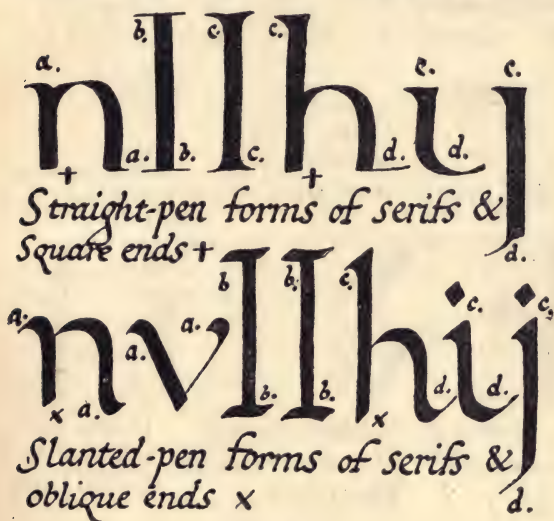 b. c. c.
a. c. c.
n I I h i j
+ a. b. c. + d. d.
Straight-pen forms of serifs &
Square ends +
d.
b b. c.
a. a. a. c. c.
n v I I h i j
x a. b. b. x d. d.
Slanted-pen forms of serifs &
oblique ends x
d.